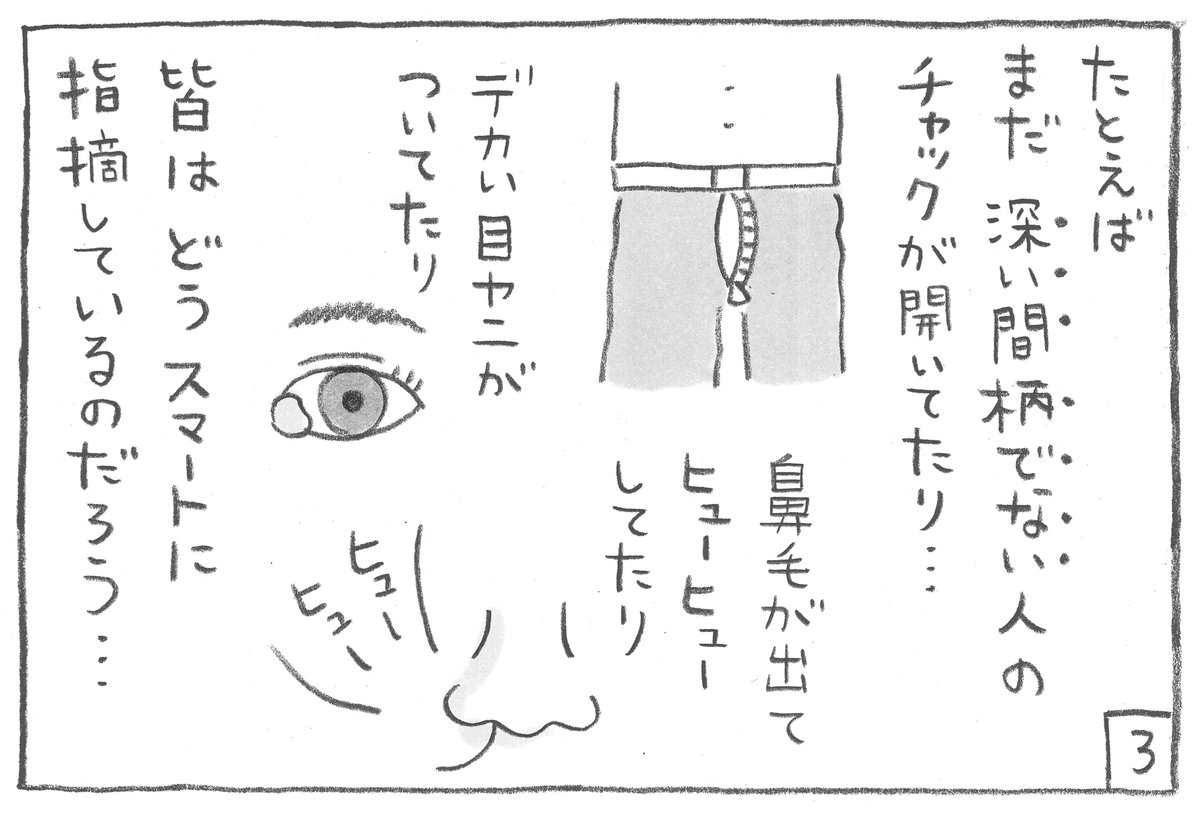 たとえば
まだ 深い間柄でない人の
チャックが開いてたり…
鼻毛が出て
ヒューヒュー
してたり
デカい目ヤニが
ついてたり
ヒュー
ヒュー
皆は どう スマートに
指摘しているのだろう…
3